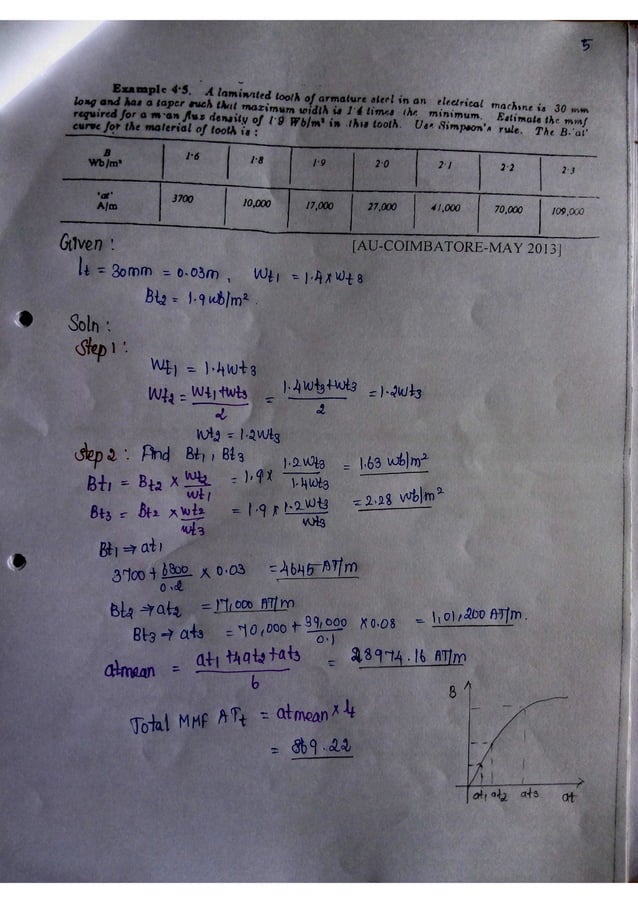 5
Example 4·5. A laminated tooth of armature steel in an electrical machine is 30 mm
long and has a taper such that maximum width is 1·4 times the minimum. Estimate the mmf
required for a mean flux density of 1·9 Wb/m² in this tooth. Use Simpson's rule. The B-'at'
curve for the material of tooth is :
B Wb/m² 1·6 1·8 1·9 2·0 2·1 2·2 2·3
'at' A/m 3700 10,000 17,000 27,000 41,000 70,000 109,000
Given :
[AU-COIMBATORE-MAY 2013]
lt = 30mm = 0.03m , Wt1 = 1.4 x Wt3
Bt2 = 1.9 wb/m² .
Soln :
Step 1 :
Wt1 = 1.4Wt3
Wt2 = Wt1+Wt3 / 2 = 1.4Wt3+Wt3 / 2 = 1.2Wt3
Wt2 = 1.2Wt3
Step 2 : Find Bt1, Bt3
Bt1 = Bt2 x Wt2/Wt1 = 1.9 x 1.2Wt3/1.4Wt3 = 1.63 wb/m²
Bt3 = Bt2 x Wt2/Wt3 = 1.9 x 1.2Wt3/Wt3 = 2.28 wb/m²
Bt1 ⇒ at1
3700 + 6300/0.2 x 0.03 = 4645 AT/m
Bt2 → at2 = 17,000 AT/m
Bt3 → at3 = 70,000 + 39,000/0.1 x 0.08 = 1,01,200 AT/m.
atmean = at1+4at2+at3 / 6 = 28974.16 AT/m
Total MMF ATt = atmean x lt
= 869.22
B
at1 at2 at3 at